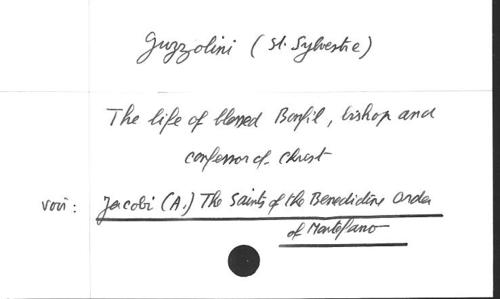 Guzzolini (St. Sylvestre)
The life of blessed Bonfil, bishop and
confessor of Christ
voir : Jacobi (A.) The Saints of the Benedictine Order
of Montefano